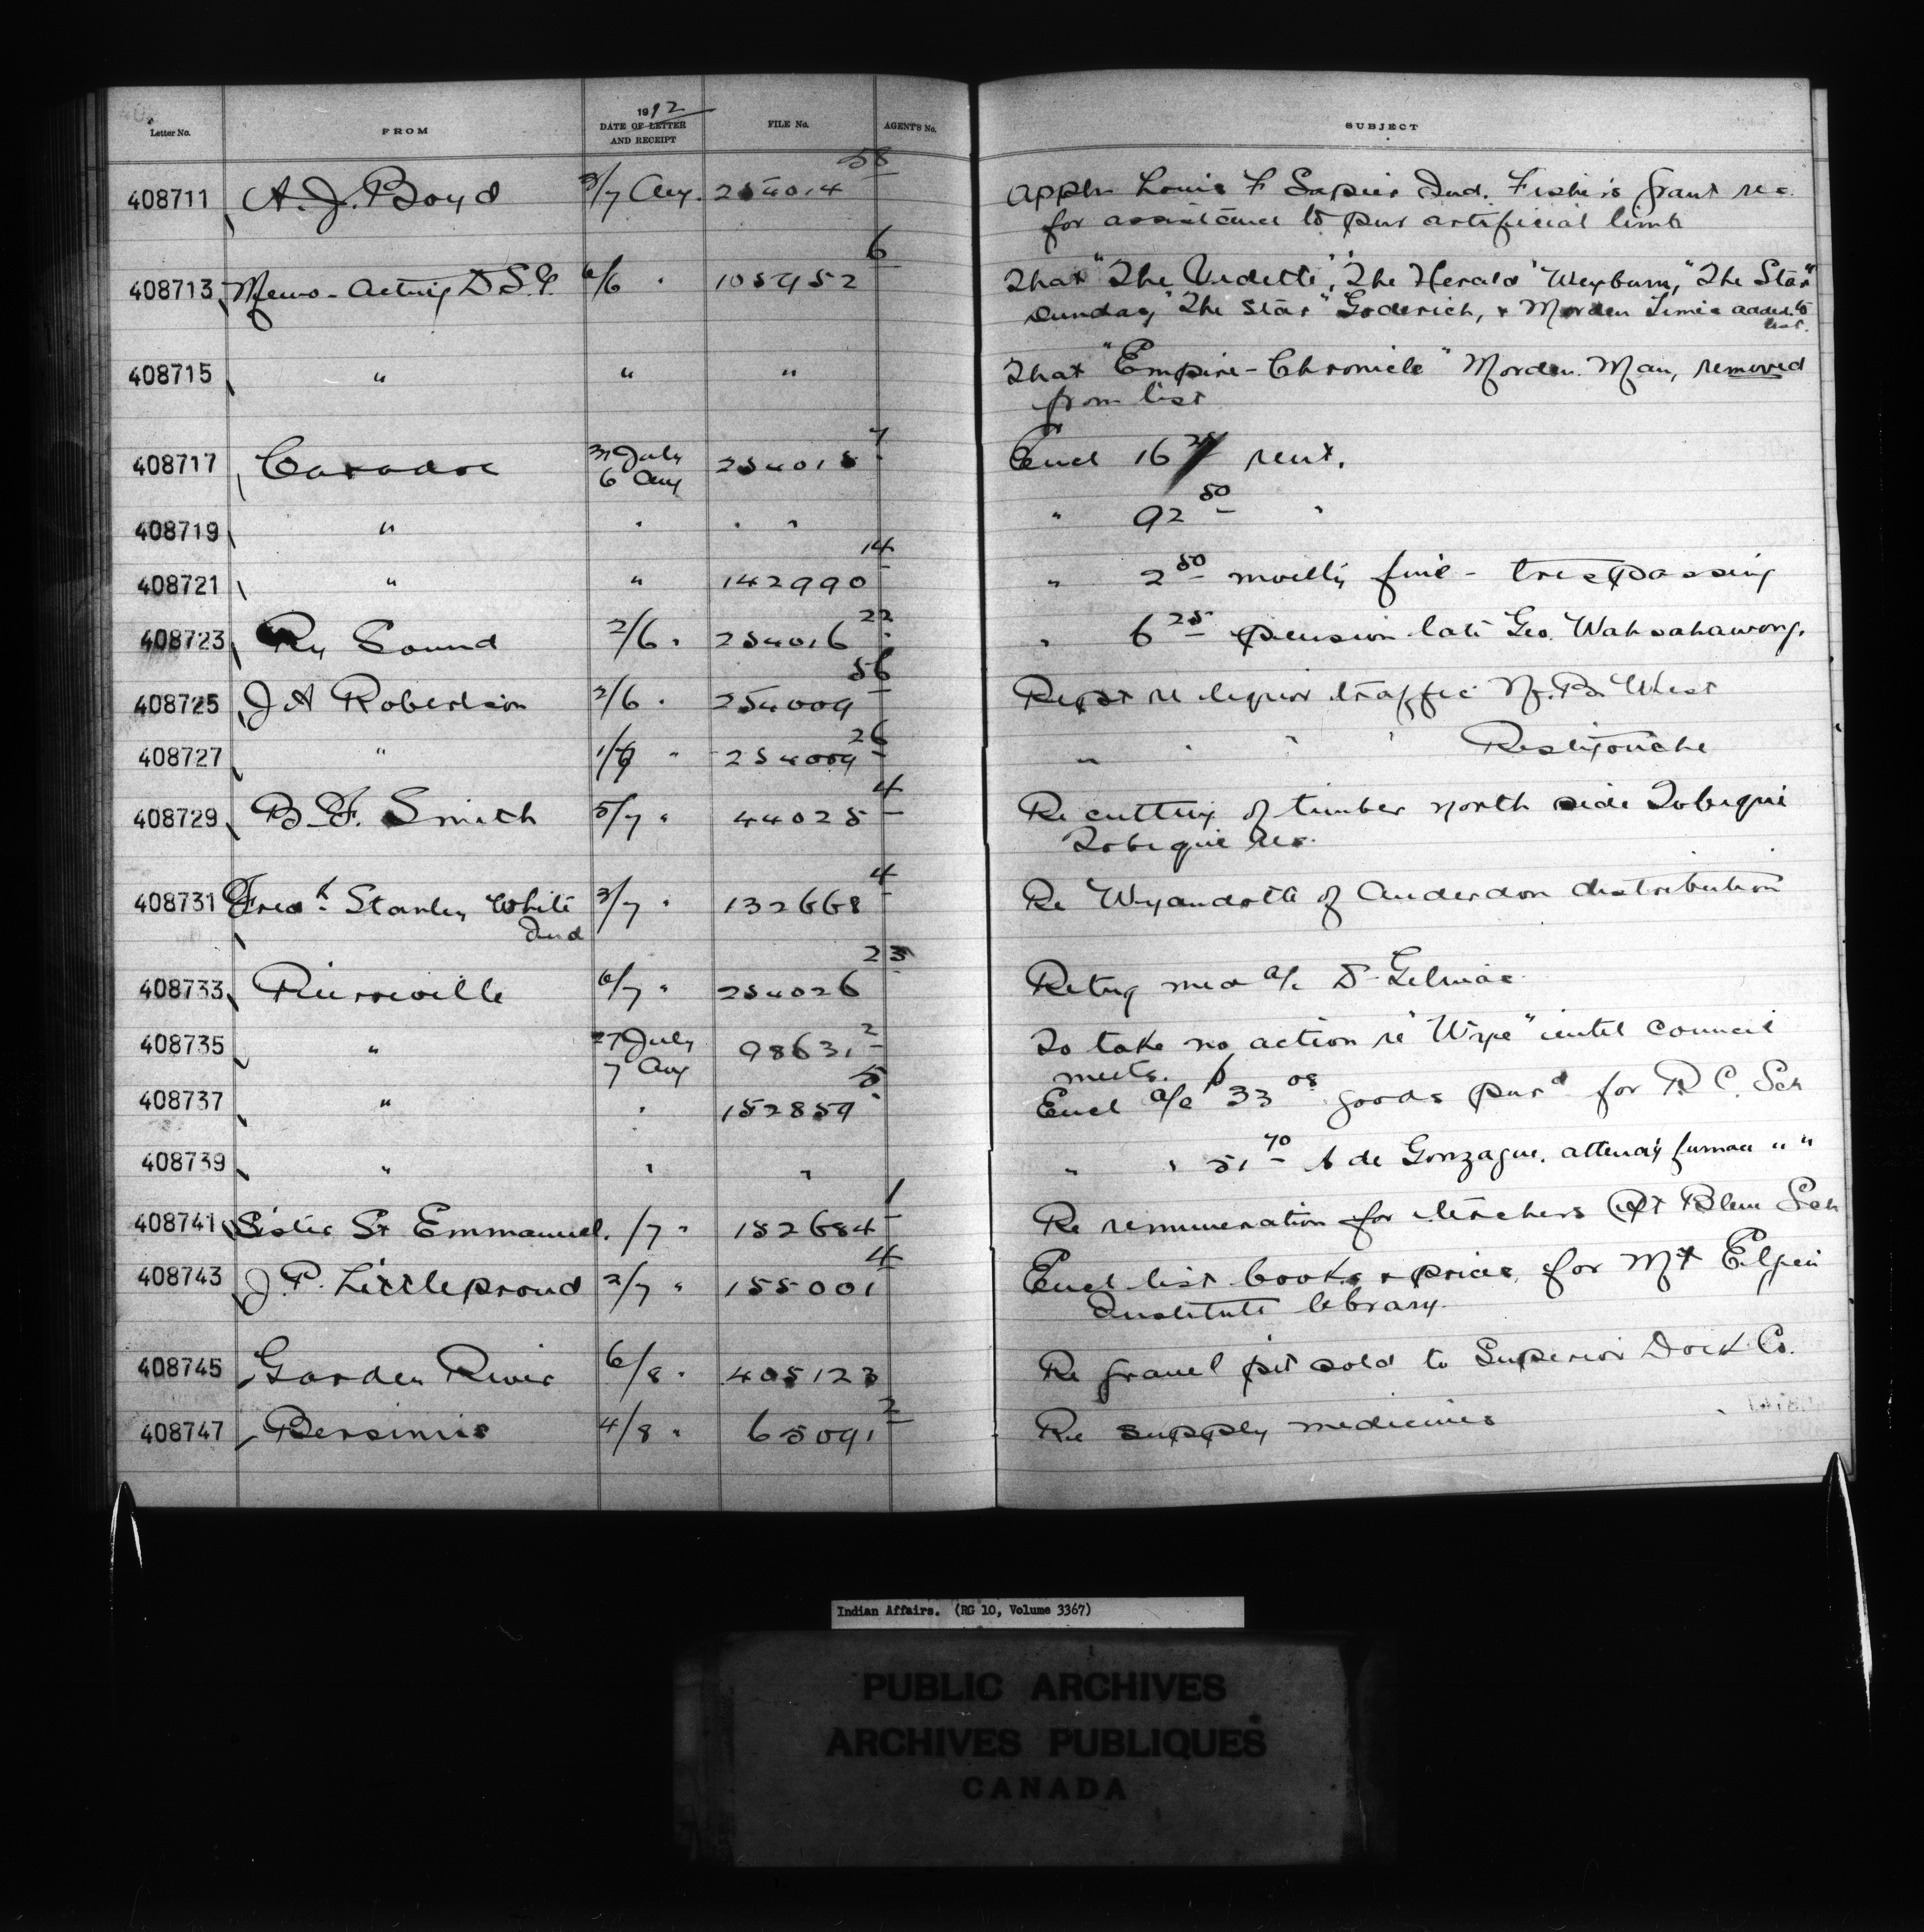 1912
Letter No. FROM DATE OF LETTER AND RECEIPT FILE No. AGENT'S No. SUBJECT
408711 A. J. Boyd 3/7 Aug. 254014 58 Appln Louis F Sapier Ind. Fisher's Grant res.
for assistance to pur artificial limb
408713 Memo - Acting D.S.G. 6/6 " 105952 6 That "The Vidette", "The Herald" Weyburn, "The Star"
Dundas, "The Star" Goderich, & Morden Times added to
list.
408715 " " " That "Empire-Chronicle" Morden Man, removed
from list
408717 Caradoc 31 July 6 Aug 254015 7 Encl 16 25 rent.
408719 " " " " " 92 50 "
408721 " " 142990 14 " 2 50 moiety fine - trespassing
408723 Py Sound 2/6 " 254016 22 " 6 25 pension late Geo. Wahsahawong.
408725 J A Robertson 2/6 " 254009 56 Rept re liquor traffic N.B. West
408727 " 1/6 " 254009 26 " " " " Restigouche
408729 B. F. Smith 5/7 " 44025 4 Re cutting of timber north side Tobique
Tobique Res.
408731 Fredk Stanley White 3/7 " 132668 4 Re Wyandotte of Anderdon distribution
Ind
408733 Pierreville 6/7 " 254026 23 Retng med a/c Dr Gelinas
408735 " 27 July 7 Aug 98631 2 To take no action re "Wipe" until Council
meets.
408737 " " 152859 5 Encl a/c $33 08 goods purd for R C. Sch
408739 " " " " " 51 70 A de Gonzague. attendg furnace " "
408741 Sister St Emmanuel. /7 " 152684 1 Re remuneration for teachers Pt Bleue Sch
408743 J. P. Littleproud 2/7 " 155001 4 Encl list books & prices, for Mt Elgin
Institute library.
408745 Garden River 6/8 " 405123 Re gravel pit sold to Superior Dock Co.
408747 Bersimis 4/8 " 65091 2 Re supply medicines
Indian Affairs. (RG 10, Volume 3367)
PUBLIC ARCHIVES
ARCHIVES PUBLIQUES
CANADA